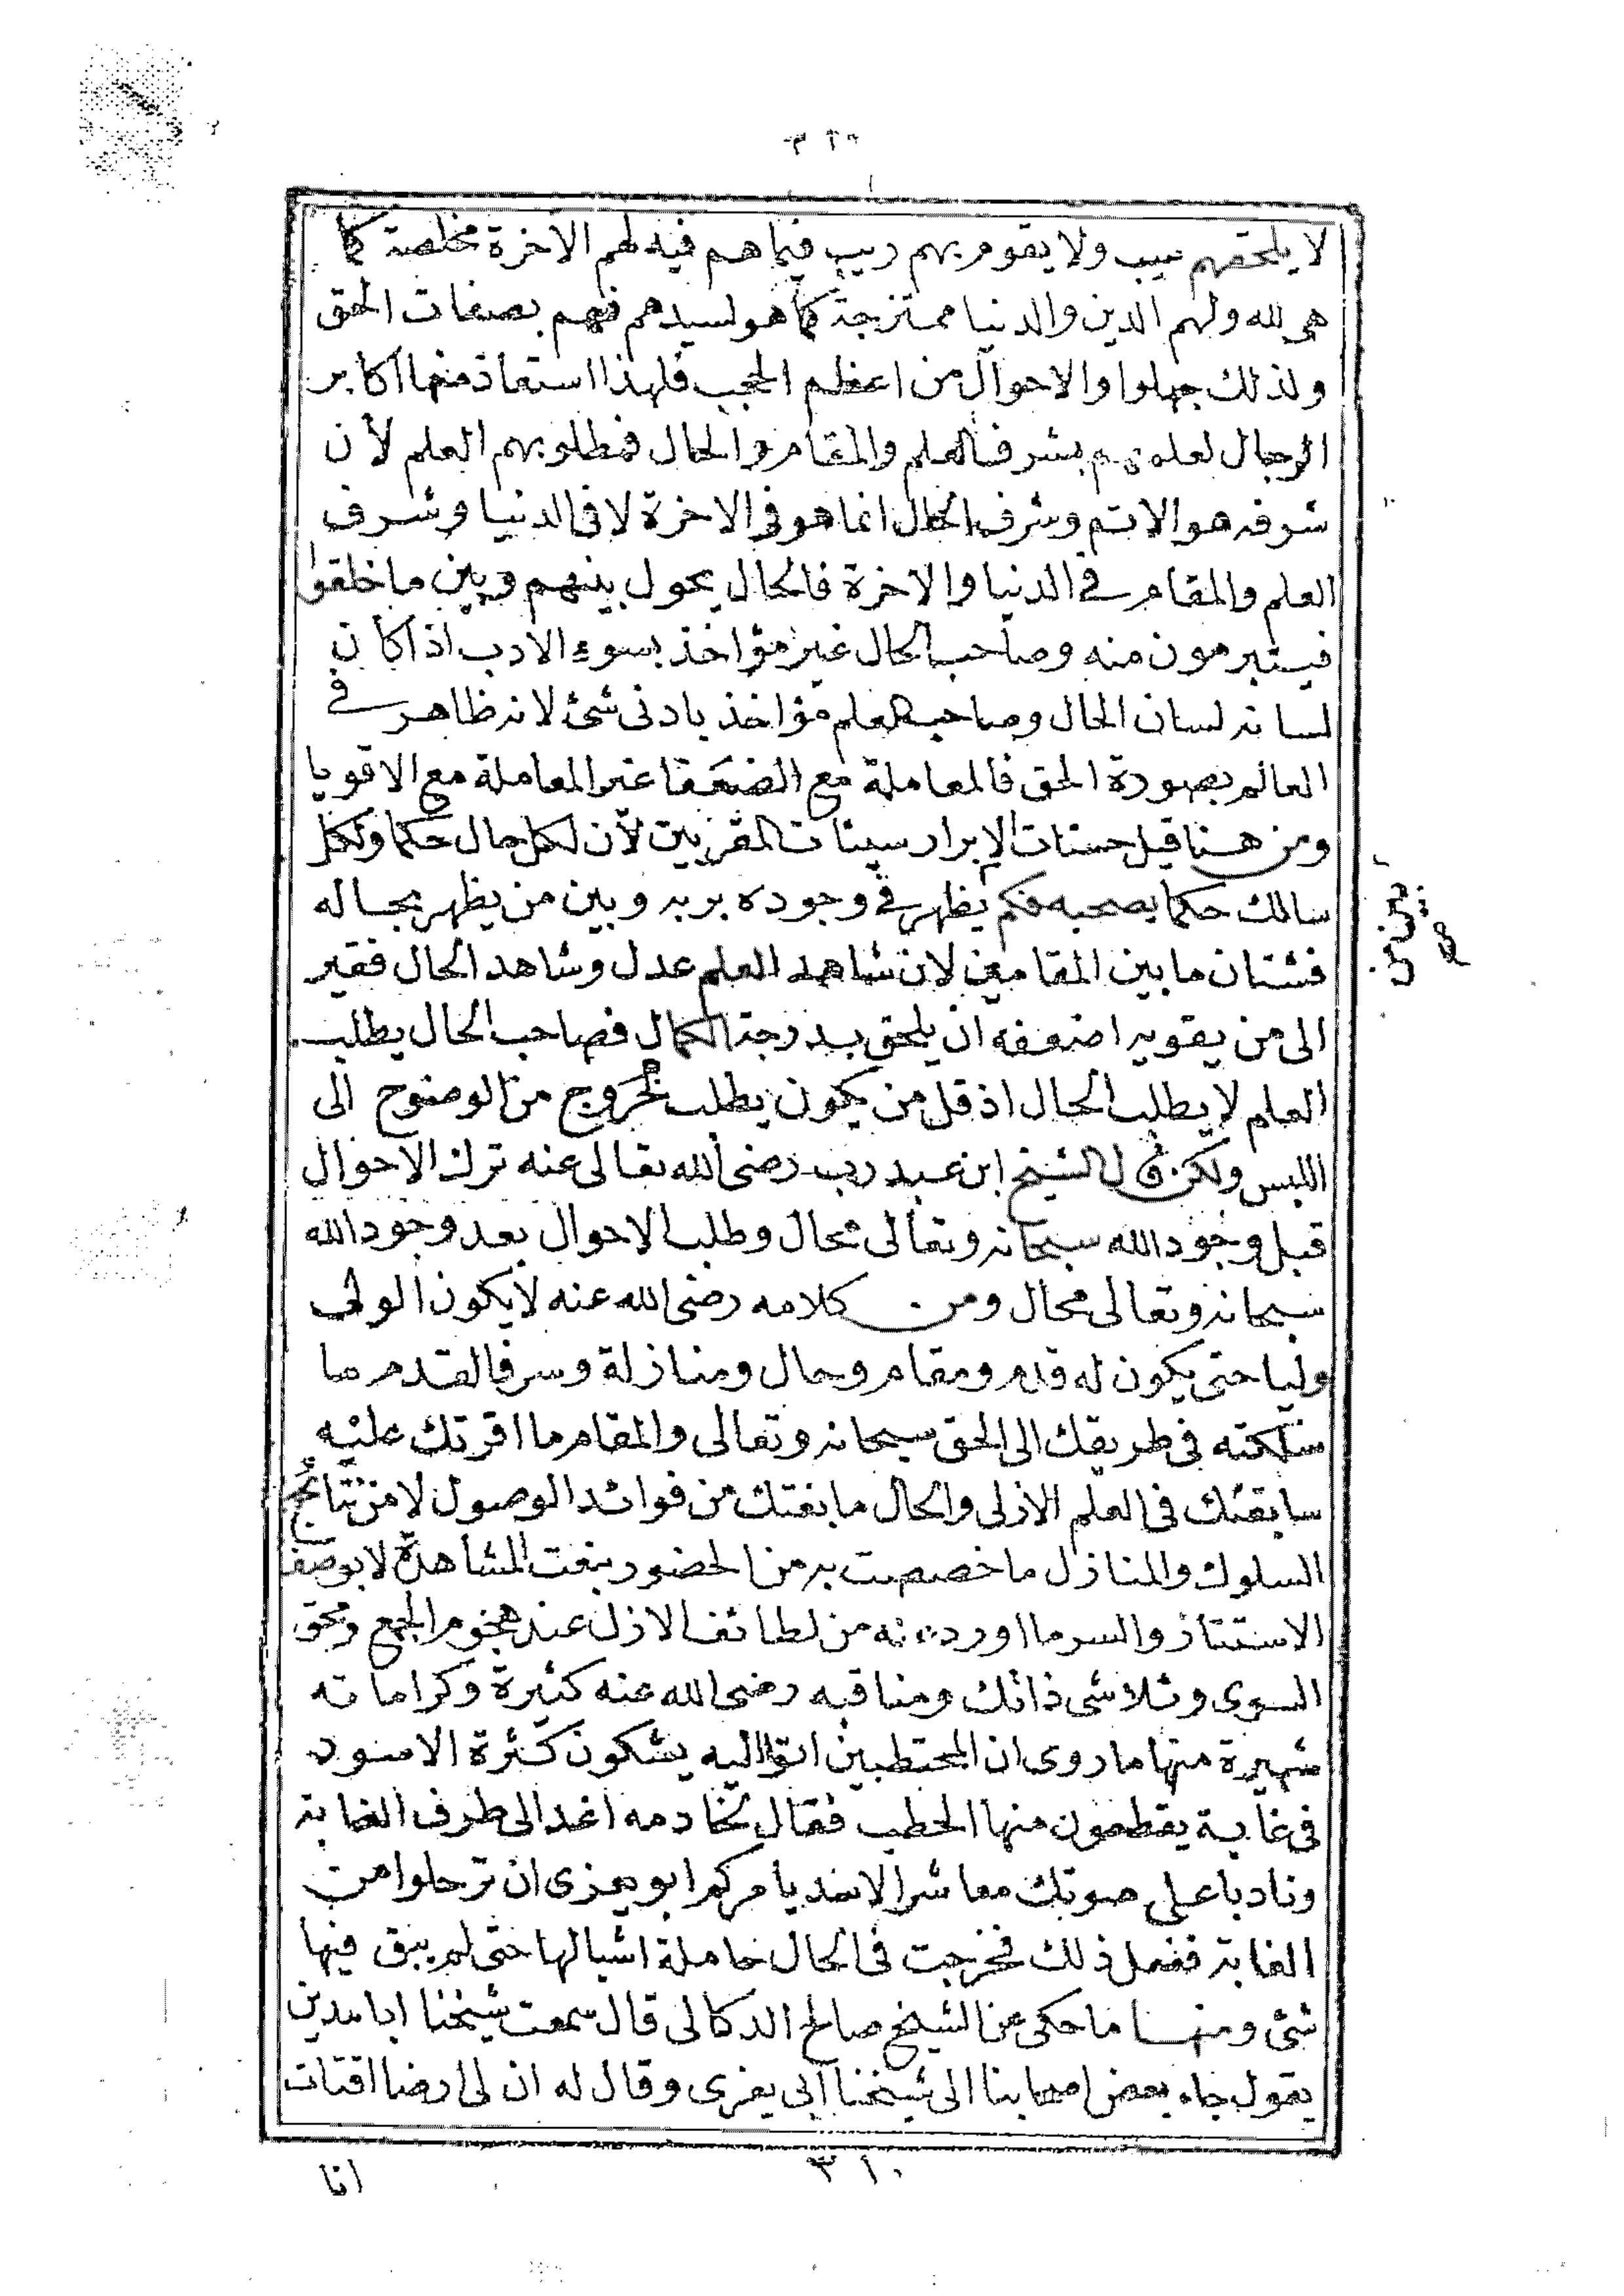 لا يلحقهم عيب ولا يقوم بهم ريب فيما هم فيه لهم الاخرة مخلصة كما
هي لله ولهم الدين والدنيا ممتزجة كما هو لسيدهم فهم بصفات الحق
ولذلك جهلوا والاحوال من اعظم الحجب فلهذا استعاذ منها اكابر
الرجال لعلمهم بشرف العلم والمقام والحال فمطلوبهم العلم لأن
شرفه هو الاتم وشرف الحال انما هو في الاخرة لا في الدنيا وشرف
العلم والمقام في الدنيا والاخرة فالحال يحول بينهم وبين ما خلقوا
فيتبرمون منه وصاحب الحال غير مؤاخذ بسوء الادب اذا كان
لسانه لسان الحال وصاحب العلم مؤاخذ بادنى شئ لانه ظاهر في
العالم بصورة الحق فالمعاملة مع الضعفا غير المعاملة مع الاقويا
ومن هنا قيل حسنات الابرار سيئات المقربين لأن لكل حال حكما ولكل
سالك حكما يصحبه فكم يظهر في وجوده بربه وبين من يظهر بحاله
فشتان ما بين المقامين لان شاهد العلم عدل وشاهد الحال فقير
الى من يقويه اضعفه ان يلحق بدرجة الكمال فصاحب الحال يطلب
العلم لا يطلب الحال اذ قل من يكون يطلب الخروج من الوضوح الى
اللبس ولكن قال الشيخ ابن عبد رب رضى الله تعالى عنه ترك الاحوال
قبل وجود الله سبحانه وتعالى محال وطلب الاحوال بعد وجود الله
سبحانه وتعالى محال ومن كلامه رضى الله عنه لا يكون الولى
وليا حتى يكون له قدم ومقام وحال ومنازلة وسر فالقدم ما
سلكته في طريقك الى الحق سبحانه وتعالى والمقام ما اقرتك عليه
سابقتك في العلم الازلى والحال ما بعثك من فوائد الوصول لا من نتائج
السلوك والمنازل ما خصصت به من الحضور بنعت المشاهدة لا بوصف
الاستتار والسر ما اوردته من لطائف الازل عند هجوم الجمع ومحق
السوى وتلاشى ذاتك ومناقبه رضى الله عنه كثيرة وكراماته
شهيرة منها ما روى ان المحتطبين اتوا اليه يشكون كثرة الاسود
في غابة يقطعون منها الحطب فقال لخادمه اغد الى طرف الغابة
وناد باعلى صوتك معاشر الاسد يامركم ابو يعزى ان ترحلوا من
الغابة ففعل ذلك فخرجت في الحال حاملة اشبالها حتى لم يبق فيها
شئ ومنها ما حكى عن الشيخ صالح الدكالى قال سمعت شيخنا ابا مدين
يقول جاء بعض اصحابنا الى شيخنا ابي يعزى وقال له ان لى ارضا اقتات
٣١٠
انا